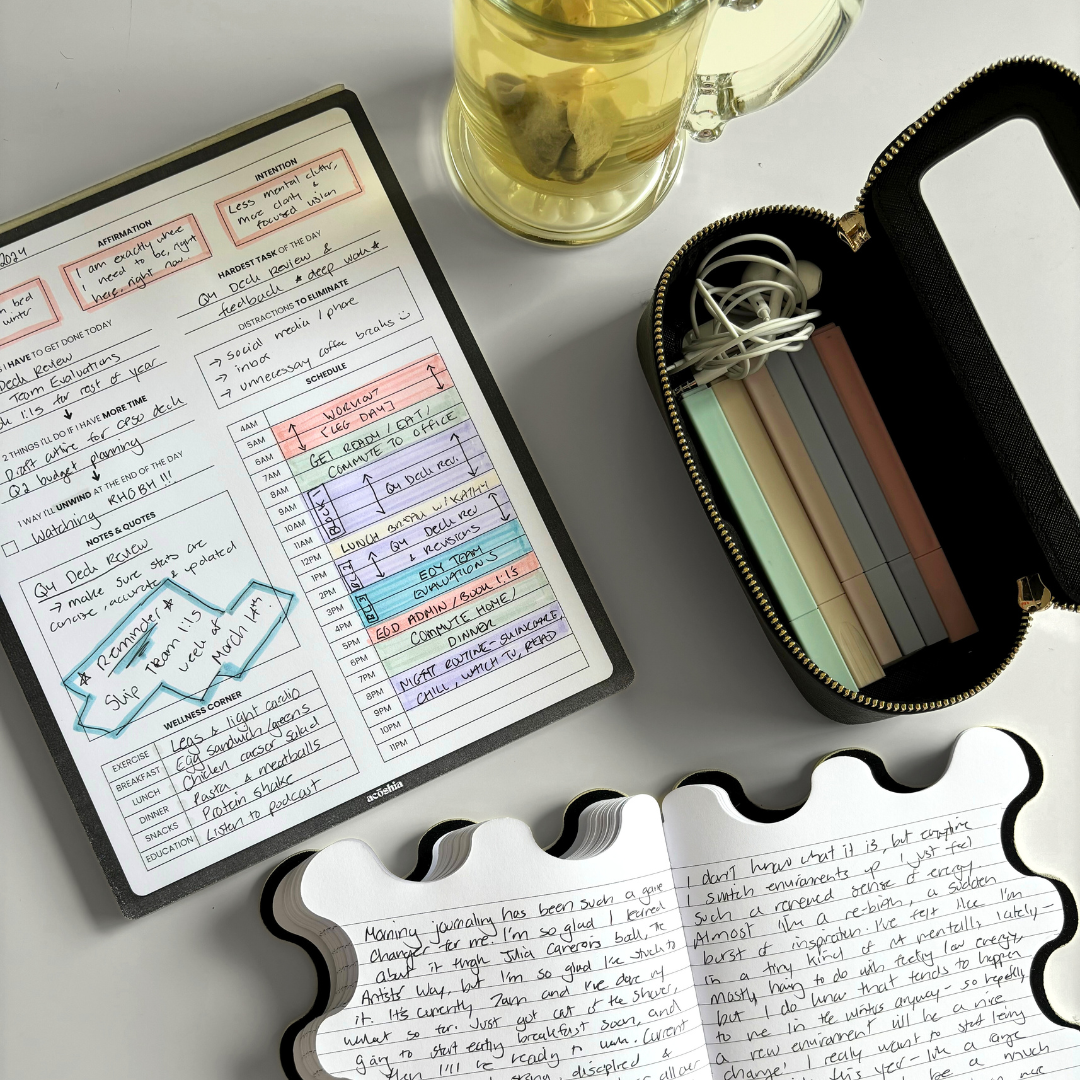 2024
AFFIRMATION
I am exactly where
I need to be, right
here, right now.
INTENTION
Less mental clutter,
more clarity &
focused vision
bed
winter
HARDEST TASK OF THE DAY
Q4 Deck Review &
feedback * deep work *
I HAVE TO GET DONE TODAY
Deck Review
Team Evaluations
1:1s for rest of year
2 THINGS I'LL DO IF I HAVE MORE TIME
Draft outline for CPSO deck
Q2 budget planning
1 WAY I'LL UNWIND AT THE END OF THE DAY
Watching RHOBH !!!
NOTES & QUOTES
Q4 Deck Review
→ make sure stats are
concise, accurate & updated
* Reminder *
Skip Team 1:1s
week of
March 1st.
WELLNESS CORNER
EXERCISE Legs & light cardio
BREAKFAST Egg sandwich/greens
LUNCH Chicken caesar salad
DINNER Pasta & meatballs
SNACKS Protein shake
EDUCATION Listen to podcast
DISTRACTIONS TO ELIMINATE
→ social media / phone
→ inbox
→ unnecessary coffee breaks
SCHEDULE
4AM WORKOUT
5AM [LEG DAY]
6AM GET READY / EAT /
7AM COMMUTE TO OFFICE
8AM
9AM Q4 DECK REV.
10AM
11AM LUNCH BREAK W/ KATHY
12PM Q4 DECK REV
1PM & REVISIONS
2PM EOY TEAM
3PM EVALUATIONS
4PM EOD ADMIN / BOOK 1:1'S
5PM COMMUTE HOME /
6PM DINNER
7PM NIGHT ROUTINE - SKINCARE,
8PM CHILL, WATCH TV, READ
9PM
10PM
11PM
acōshia
Morning journaling has been such a game
changer for me. I'm so glad I learned
about it through Julia Cameron's book, The
Artists' Way, but I'm so glad I've stuck to
it. It's currently 7am and I've done my
workout so far. Just got out of the shower,
going to start eating breakfast soon, and
then I'll be ready to work. Current
strong, disciplined &
I don't know what it is, but anytime
I switch environments up I just feel
such a renewed sense of energy.
Almost like a re-birth, a sudden
burst of inspiration. I've felt like I'm
in a tiny kind of rut mentally lately—
mostly having to do with feeling low energy,
but I do know that tends to happen
to me in the winters anyway - so hopefully,
a new environment will be a nice
change! I really want to start being
this year - like a
be a much